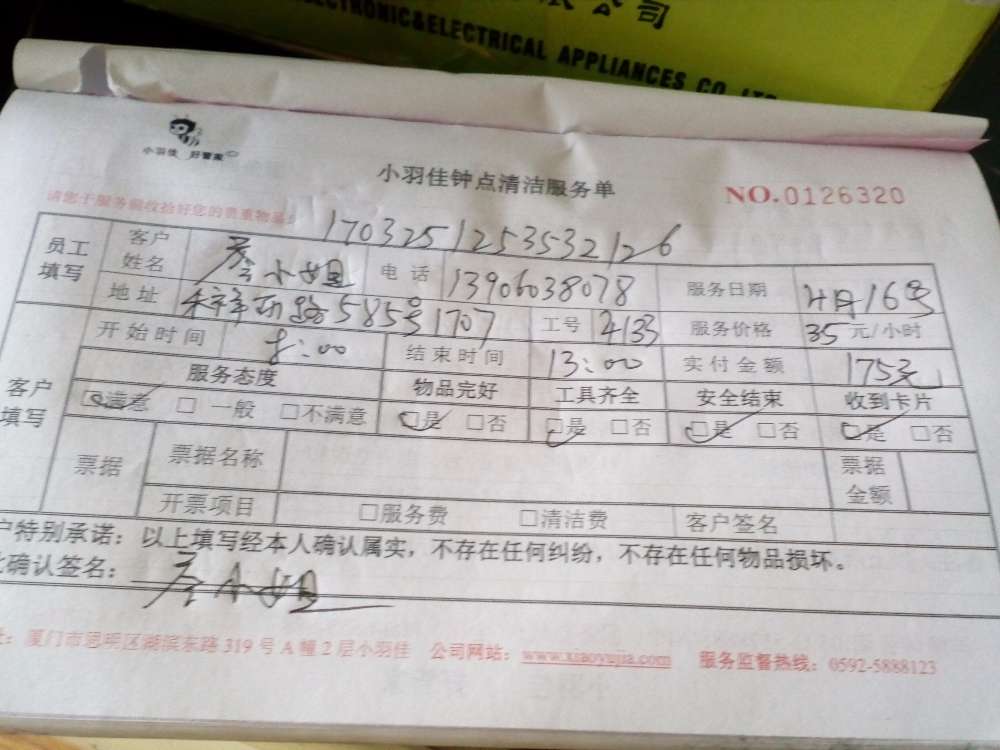 公司
ELECTRONIC&ELECTRICAL APPLIANCES CO.,LTD
小羽佳 好管家
小羽佳钟点清洁服务单
NO.0126320
请您于服务前收拾好您的贵重物品。
1703251253532126
员工填写 客户姓名 小姐 电话 13906038078 服务日期 4月16号
地址 祥 路585号1707 工号 4133 服务价格 35 元/小时
客户填写 开始时间 8:00 结束时间 13:00 实付金额 175元
服务态度 物品完好 工具齐全 安全结束 收到卡片
☑满意 □一般 □不满意 ☑是 □否 ☑是 □否 ☑是 □否 ☑是 □否
票据 票据名称 票据金额
开票项目 □服务费 □清洁费 客户签名
户特别承诺：以上填写经本人确认属实，不存在任何纠纷，不存在任何物品损坏。
确认签名： 小姐
址：厦门市思明区湖滨东路319号A幢2层小羽佳 公司网站：www.xiaoyujia.com 服务监督热线：0592-5888123